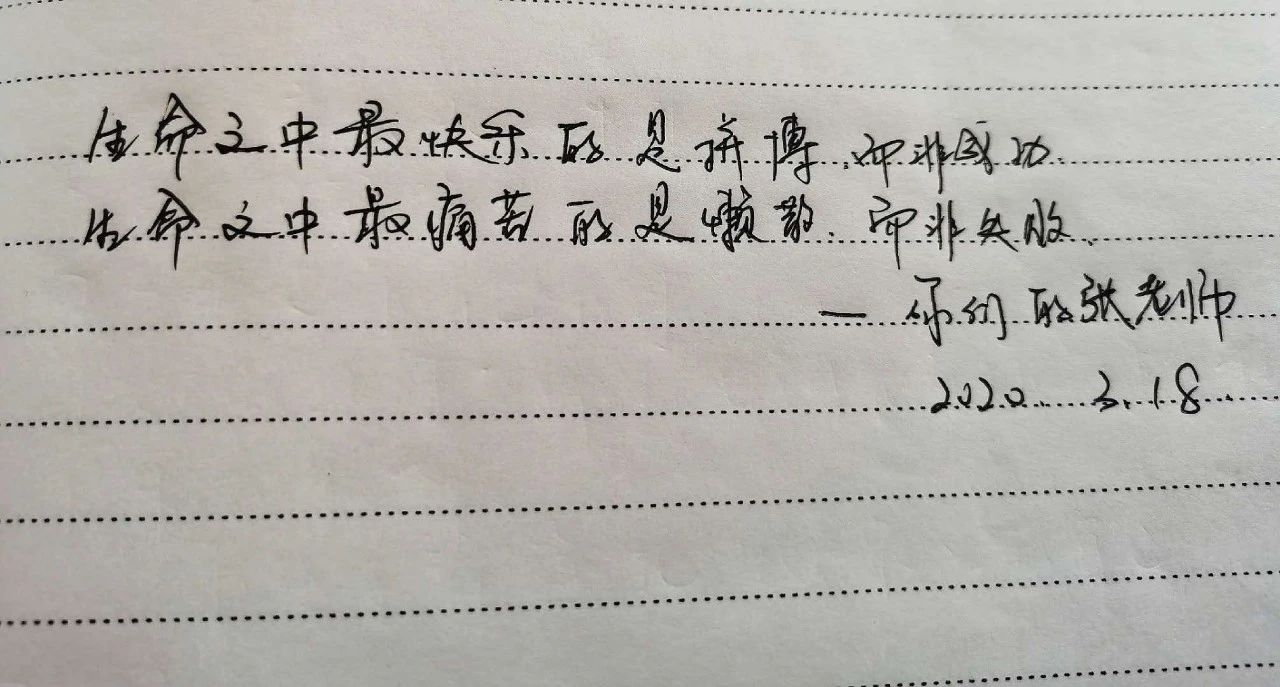 生命之中最快乐的是拼搏,而非成功.
生命之中最痛苦的是懒散.而非失败.
— 你们的张老师
2020.3.18.